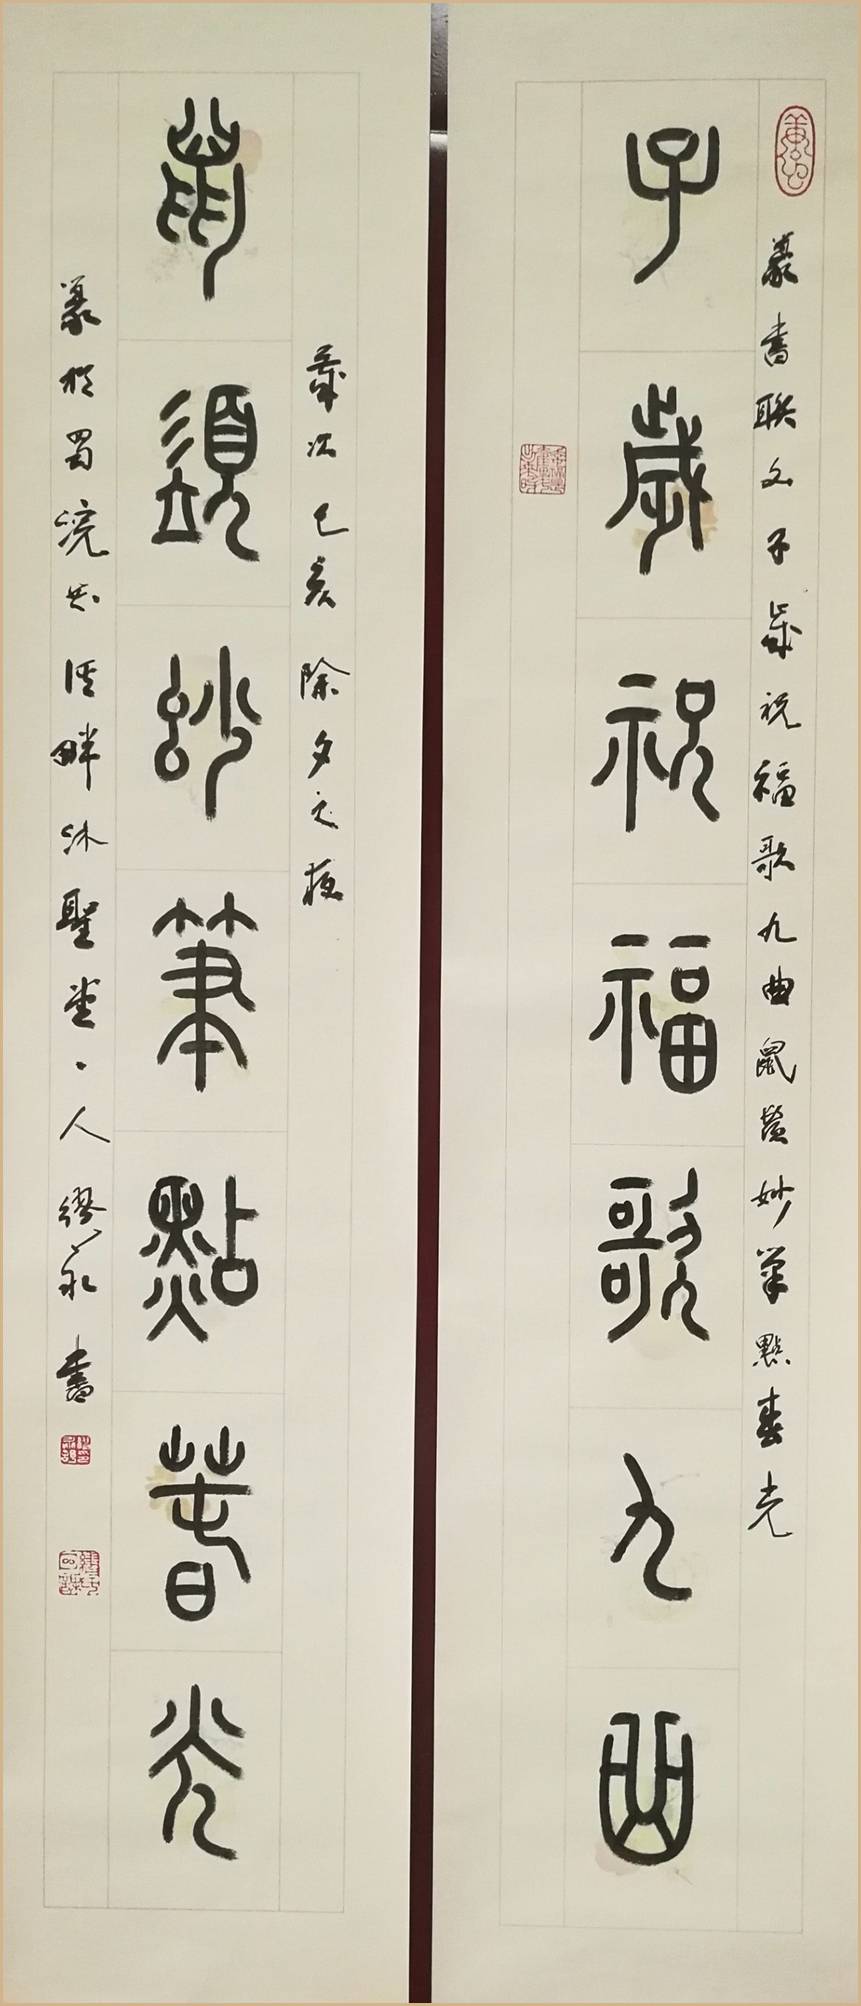 篆書联文子歲祝福歌九曲鼠鬚妙筆點春光
子歲祝福歌九曲
歲次己亥除夕之夜
鼠鬚妙筆點春光
篆於蜀浣花溪畔沐聖堂主人繆永書